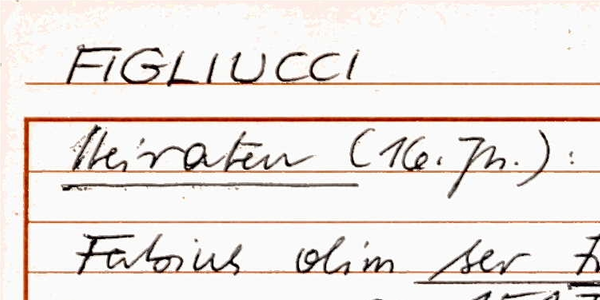 FIGLIUCCI
Heiraten (16. Jh.):
Fabius olim ser